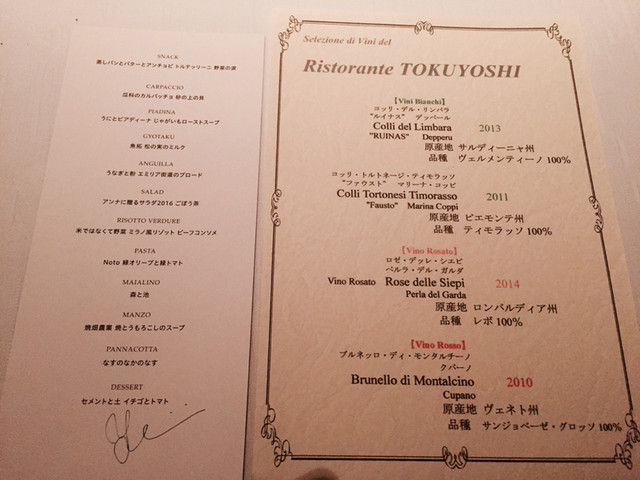 SNACK
蒸しパンとバターとアンチョビ トルテッリーニ 野菜の湯
CARPACCIO
瓜科のカルパッチョ 砂の上の貝
PIADINA
うにとピアディーナ じゃがいもローストスープ
GYOTAKU
魚拓 松の実のミルク
ANGUILLA
うなぎと粉 エミリア街道のブロード
SALAD
アンナに贈るサラダ2016 ごぼう茶
RISOTTO VERDURE
米ではなくて野菜 ミラノ風リゾット ビーフコンソメ
PASTA
Noto 緑オリーブと緑トマト
MAIALINO
森と池
MANZO
焼畑農業 焼とうもろこしのスープ
PANNACOTTA
なすのなかのなす
DESSERT
セメントと土 イチゴとトマト
Selezione di Vini del
Ristorante TOKUYOSHI
【Vini Bianchi】
コッリ・デル・リンバラ
"ルイナス" デッペール
Colli del Limbara 2013
"RUINAS" Depperu
原産地 サルディーニャ州
品種 ヴェルメンティーノ 100%
コッリ・トルトネージ・ティモラッソ
"ファウスト" マリーナ・コッピ
Colli Tortonesi Timorasso 2011
"Fausto" Marina Coppi
原産地 ピエモンテ州
品種 ティモラッソ 100%
【Vino Rosato】
ロゼ・デッレ・シエピ
ペルラ・デル・ガルダ
Vino Rosato Rose delle Siepi 2014
Perla del Garda
原産地 ロンバルディア州
品種 レボ 100%
【Vino Rosso】
ブルネッロ・ディ・モンタルチーノ
クパーノ
Brunello di Montalcino 2010
Cupano
原産地 ヴェネト州
品種 サンジョベーゼ・グロッソ 100%